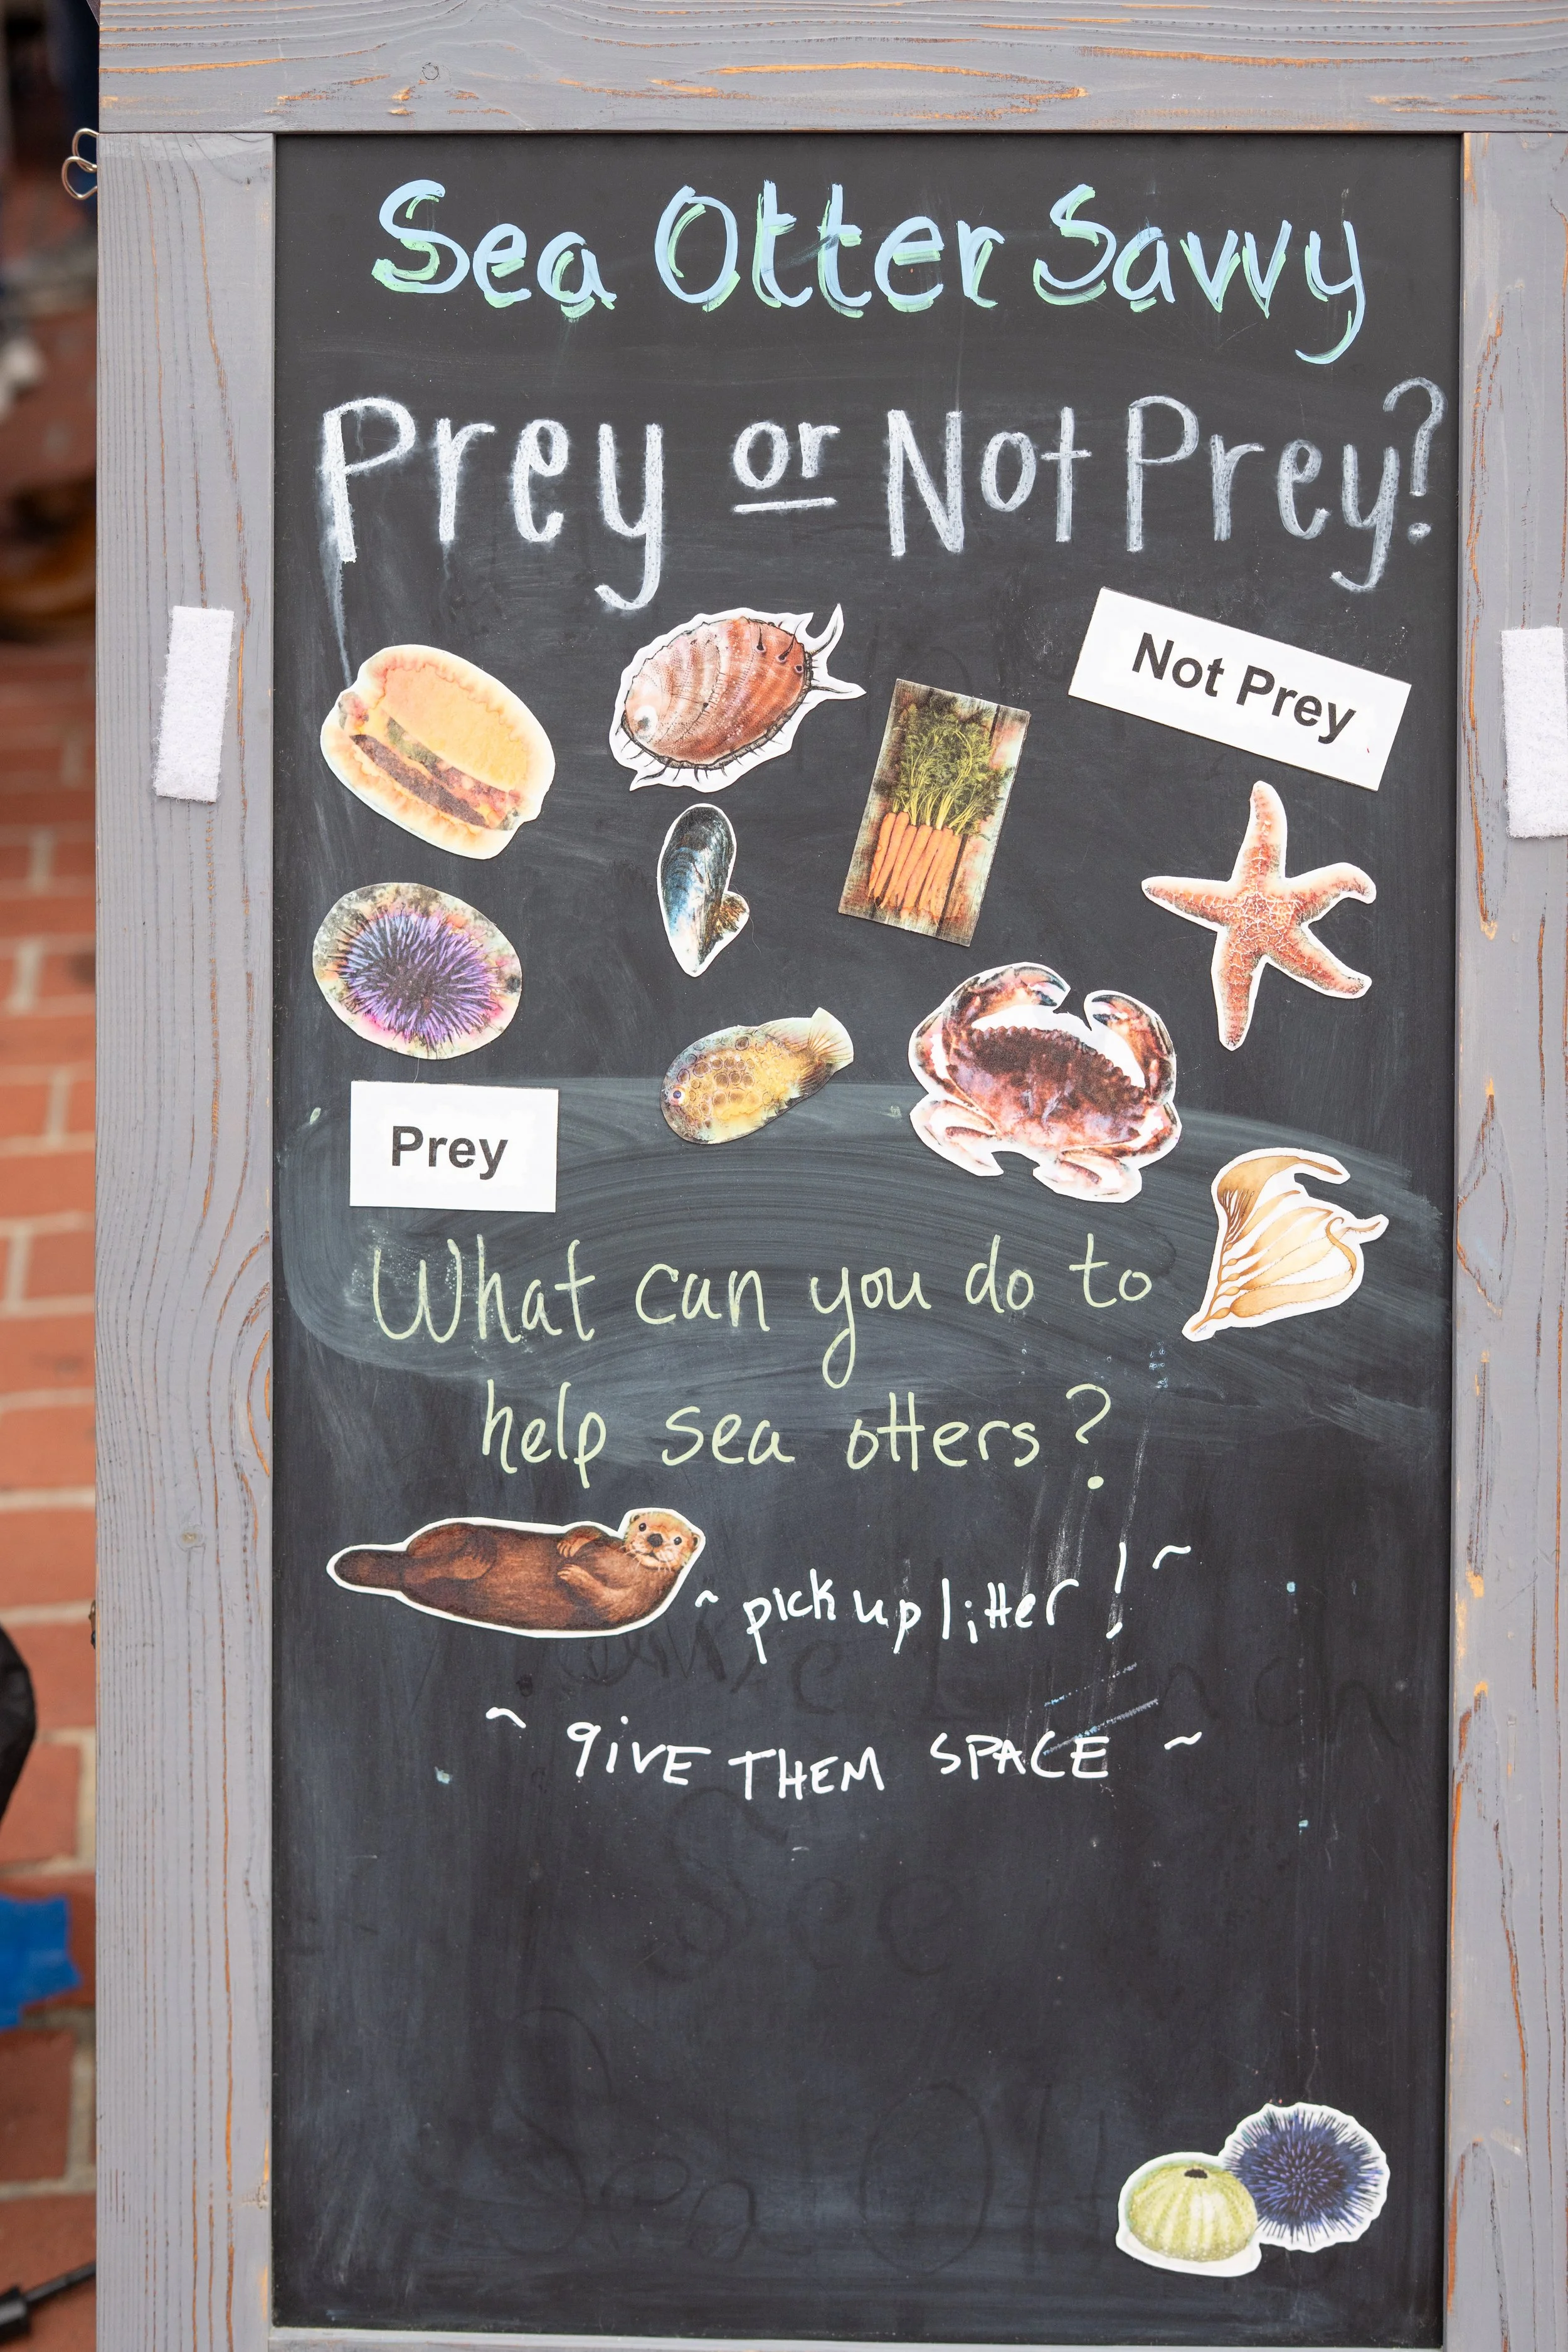 Sea Otter Savvy
Prey or Not Prey?
Not Prey
Prey
What can you do to
help sea otters?
~ pick up litter! ~
~ giVE THEM SPACE ~
See
Sea Ott